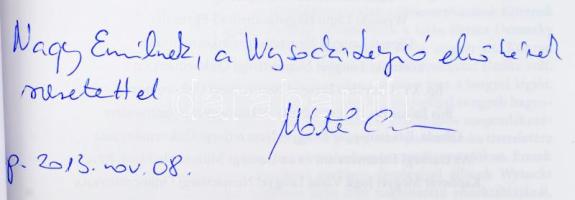 Nagy Emilnek, a Wysocki Légió elnökének
szeretettel
Máté
p. 2013. nov. 08.
darabanth